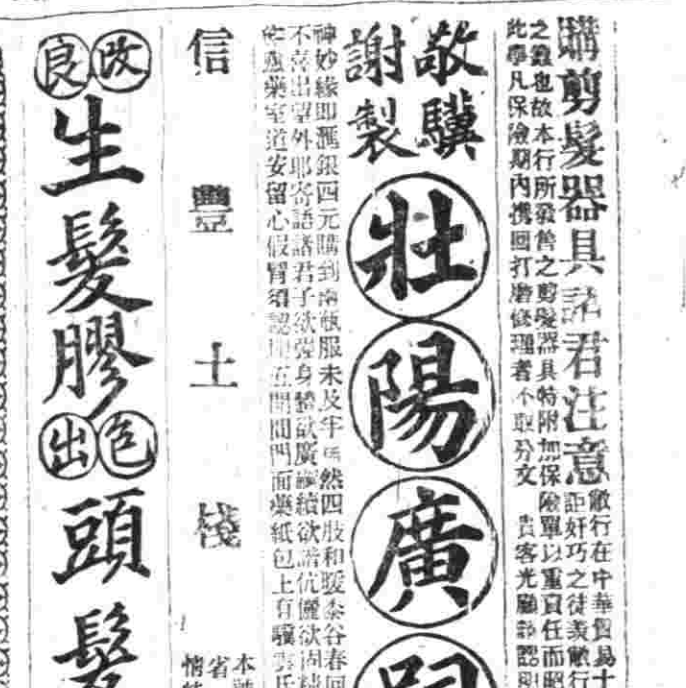 購剪髮器具諸君注意
敝行在中華貿易十
詎奸巧之徒羨敝行
之盛也故本行所發售之剪髮器具特附加保險單以重責任而昭
此舉凡保險期內携回打磨修理者不取分文 貴客光顧請認明
敬謝
驥製
壯陽廣嗣
神妙緣即滙銀四元購到兩瓶服未及半 然四肢和暖黍谷春回
不喜出望外耶寄語諸君子欲强身體欲廣嗣續欲諧伉儷欲固精
藥室道安留心假冒須認 五開間門面藥紙包上有驥 氏
信豐土棧
本
省
情
改良
生髮膠
出色
頭髮